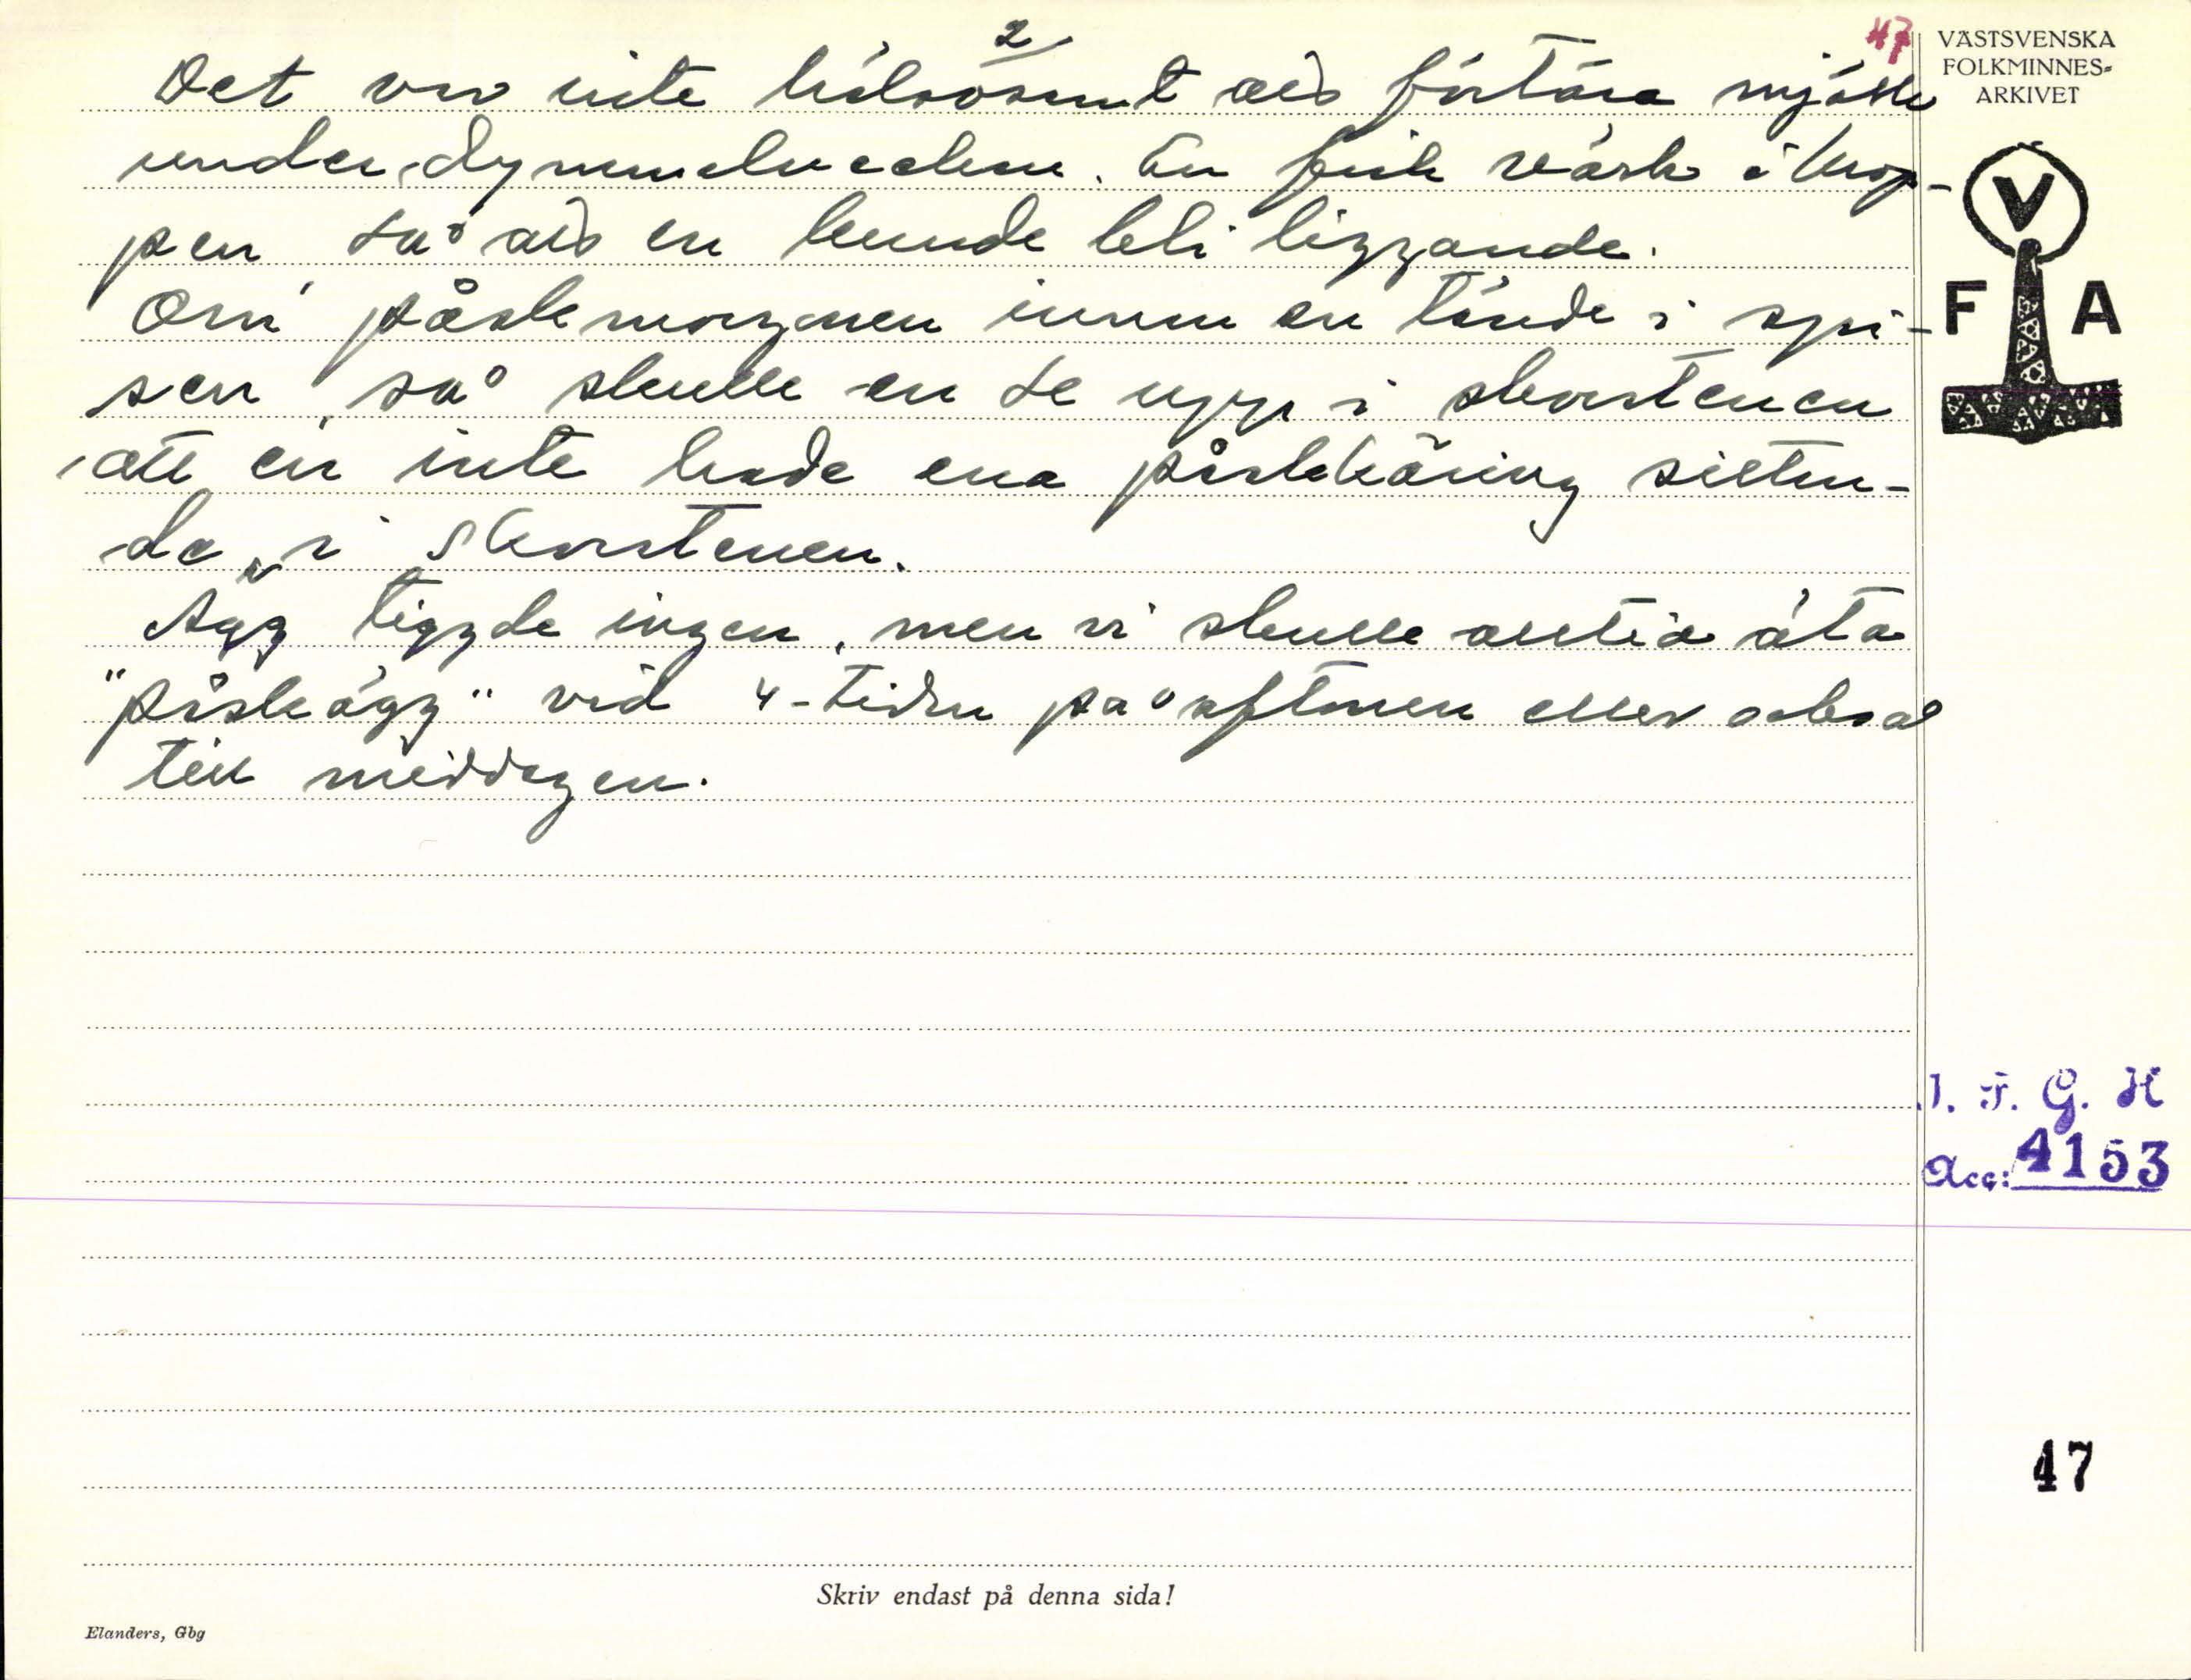 2
47
VÄSTSVENSKA
FOLKMINNES-
ARKIVET
V
F A
Det var inte hälsosamt att förtära mjölk
under dymmelveckan. En fick värk i krop-
pen, så att en kunde bli liggande.
Om påskemorgonen innan en tände i spi-
sen, så skulle en se upp i skorstenen
att en inte hade ena påskkäring sittan-
de i skorstenen.
Ägg tiggde ingen, men vi skulle alltid äta
"påskägg" vid 4-tiden på aftonen eller också
till middagen.
I. F. G. H
Acc: 4153
47
Skriv endast på denna sida!
Elanders, Gbg